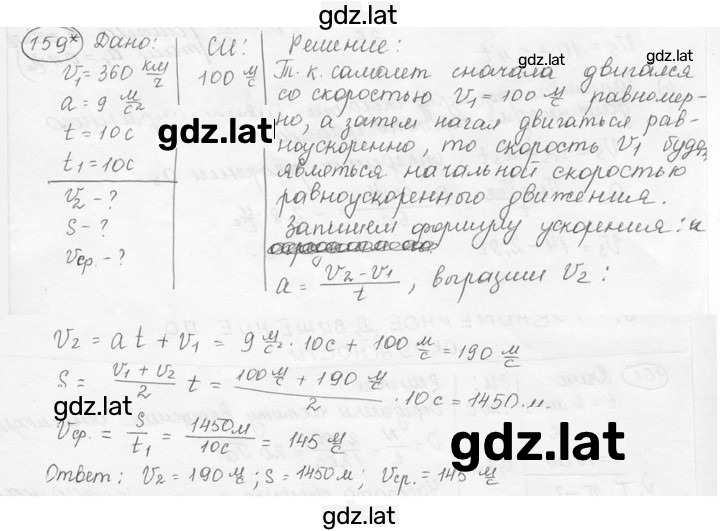 gdz.lat
159* Дано:
V₁ = 360 км/ч
a = 9 м/с²
t = 10с
t₁ = 10с
V₂ - ?
S - ?
Vср. - ?
СИ:
100 м/с
Решение:
Т.к. самолет сначала двигался
со скоростью V₁ = 100 м/с равномер-
но, а затем начал двигаться рав-
ноускоренно, то скорость V₁ будет
являться начальной скоростью
равноускоренного движения.
Запишем формулу ускорения:
a = (V₂ - V₁)/t, выразим V₂:
gdz.lat
V₂ = at + V₁ = 9 м/с² · 10с + 100 м/с = 190 м/с
S = (V₁ + V₂)/2 t = (100 м/с + 190 м/с)/2 · 10с = 1450 м.
gdz.lat
Vср. = S/t₁ = 1450м/10с = 145 м/с
gdz.lat
Ответ: V₂ = 190 м/с; S = 1450м; Vср. = 145 м/с
gdz.lat